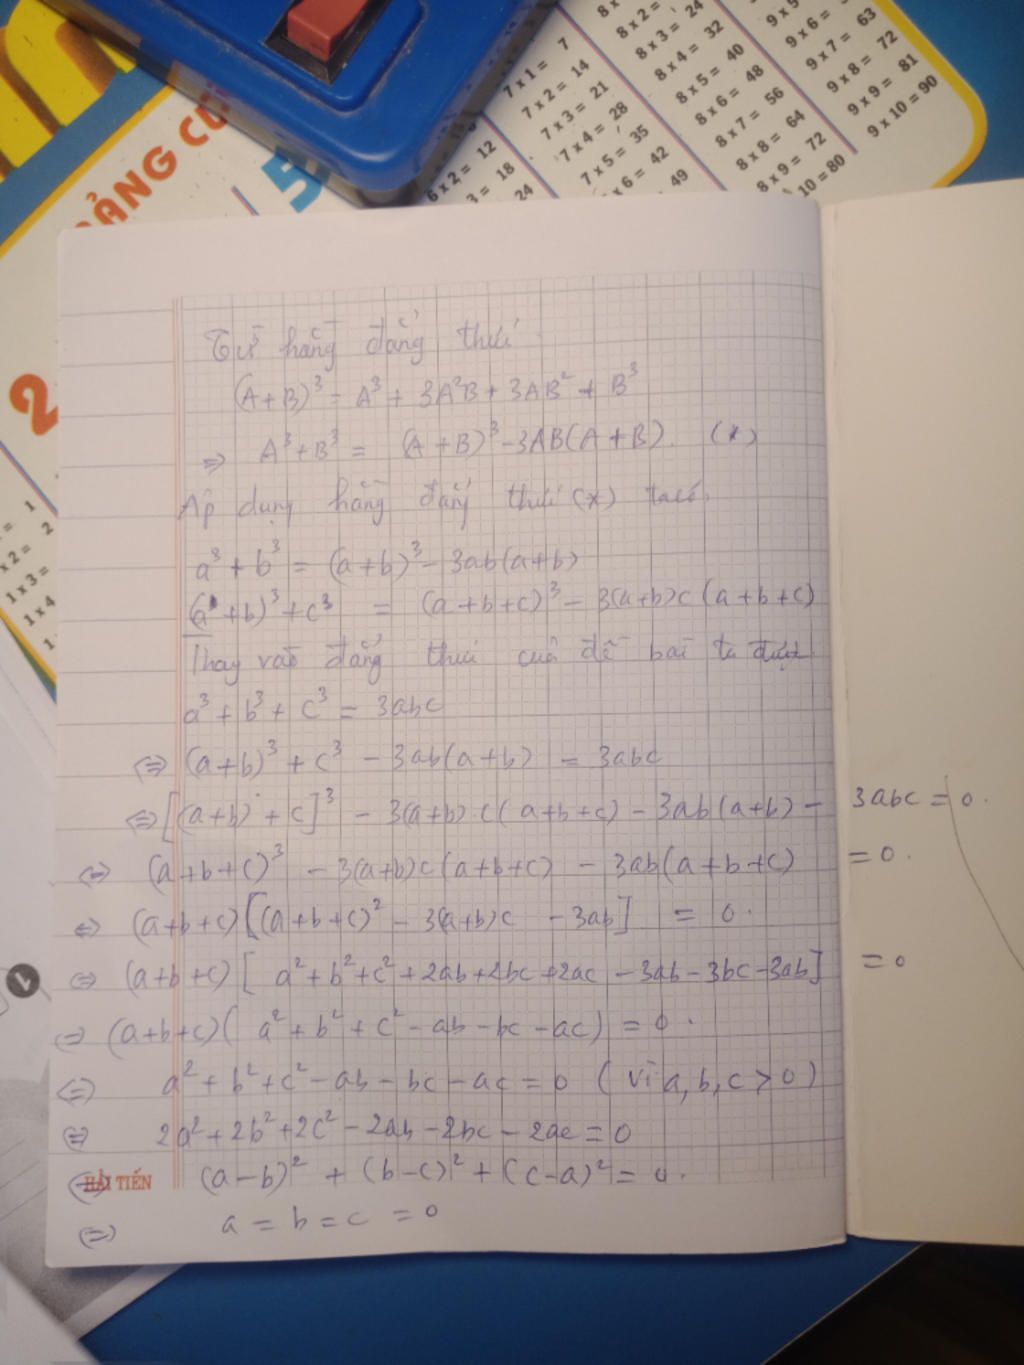 7 x 1 = 7
7 x 2 = 14
7 x 3 = 21
7 x 4 = 28
7 x 5 = 35
x 6 = 42
49
8 x 2 =
8 x 3 = 24
8 x 4 = 32
8 x 5 = 40
8 x 6 = 48
8 x 7 = 56
8 x 8 = 64
8 x 9 = 72
10 = 80
9 x 5
9 x 6 =
9 x 7 = 63
9 x 8 = 72
9 x 9 = 81
9 x 10 = 90
6 x 2 = 12
3 = 18
24
ẢNG CỘ
5
2
= 1
x 2 = 2
1 x 3 =
1 x 4
1
Từ hằng đẳng thức
(A+B)³ = A³ + 3A²B + 3AB² + B³
=> A³+B³ = (A+B)³-3AB(A+B). (*)
Áp dụng hằng đẳng thức (*) ta có
a³ + b³ = (a+b)³ - 3ab(a+b)
(a+b)³ + c³ = (a+b+c)³ - 3(a+b)c(a+b+c)
Thay vào đẳng thức của đề bài ta được
a³ + b³ + c³ = 3abc
<=> (a+b)³ + c³ - 3ab(a+b) = 3abc
<=> [(a+b) + c]³ - 3(a+b).c(a+b+c) - 3ab(a+b) - 3abc = 0.
<=> (a+b+c)³ - 3(a+b)c(a+b+c) - 3ab(a+b+c) = 0.
<=> (a+b+c)[(a+b+c)² - 3(a+b)c - 3ab] = 0.
<=> (a+b+c)[a²+b²+c²+2ab+2bc+2ac-3ab-3bc-3ab] = 0
<=> (a+b+c)(a²+b²+c²-ab-bc-ac) = 0.
<=> a²+b²+c²-ab-bc-ac = 0 (vì a,b,c>0)
<=> 2a²+2b²+2c²-2ab-2bc-2ac=0
<=> (a-b)² + (b-c)² + (c-a)² = 0.
HẢI TIẾN
<=> a = b = c = 0